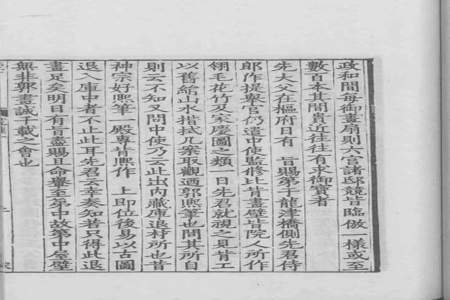 政和間每御畫扇則六宮諸邸競皆臨倣一樣或至
數百本其間貴近往往有求御寶者
先大父在樞府日有 旨賜第於龍津橋側先君侍
郎作提舉官仍遣中使監修比背畫壁皆院人所作
翎毛花竹及家慶圖之類一日先君就視之見背工
以舊絹山水揩拭几案取觀迺郭熙筆也問其所自
則云不知又問中使乃云此出內藏庫退材所也昔
神宗好熙筆一殿專背熙作 上即位後易以古圖
退入庫中者不止此耳先君云幸奏知若只得此退
畫足矣明日有旨盡賜且命轝至第中故第中屋壁
無非郭畫誠千載之會也